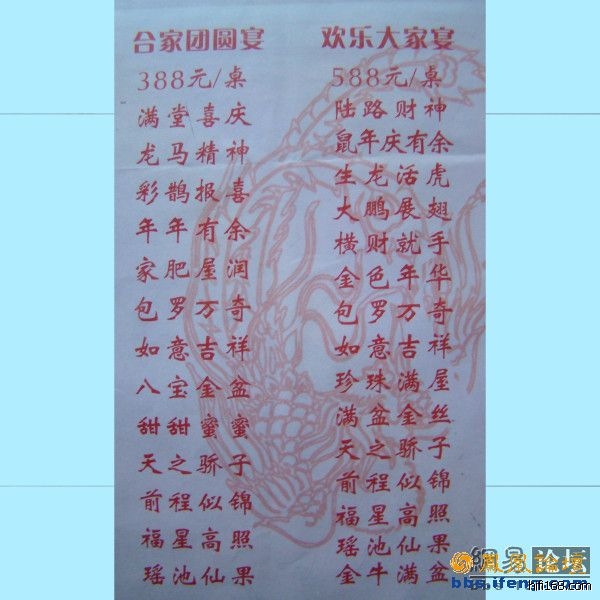 合家团圆宴
388元/桌
满堂喜庆
龙马精神
彩鹊报喜
年年有余
家肥屋润
包罗万奇
如意吉祥
八宝金盆
甜甜蜜蜜
天之骄子
前程似锦
福星高照
瑶池仙果
欢乐大家宴
588元/桌
陆路财神
鼠年庆有余
生龙活虎
大鹏展翅
横财就手
金色年华
包罗万奇
如意吉祥
珍珠满屋
满盆金丝
天之骄子
前程似锦
福星高照
瑶池仙果
金牛满盆
凤凰论坛
网易论坛